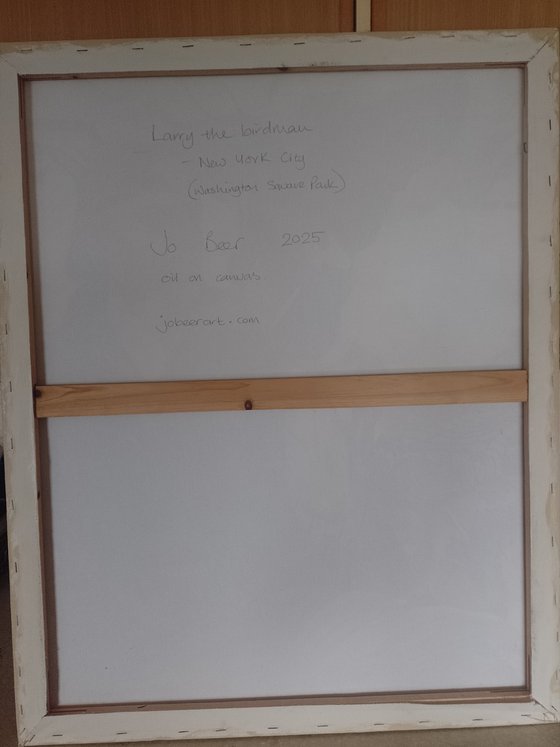 Larry the birdman
- New York City
(Washington Square Park)
Jo Beer 2025
oil on canvas.
jobeerart.com